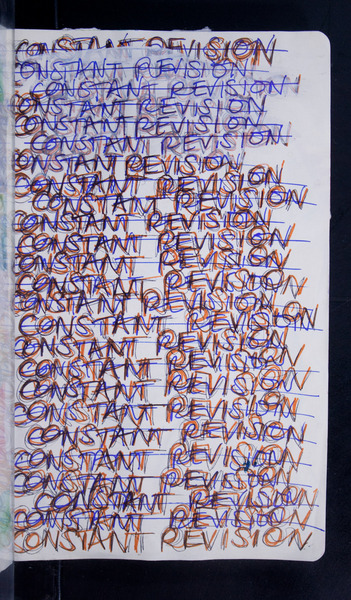 CONSTANT REVISION
CONSTANT REVISION
CONSTANT REVISION
CONSTANT REVISION
CONSTANT REVISION
CONSTANT REVISION
CONSTANT REVISION
CONSTANT REVISION
CONSTANT REVISION
CONSTANT REVISION
CONSTANT REVISION
CONSTANT REVISION
CONSTANT REVISION
CONSTANT REVISION
CONSTANT REVISION
CONSTANT REVISION
CONSTANT REVISION
CONSTANT REVISION
CONSTANT REVISION
CONSTANT REVISION
CONSTANT REVISION
CONSTANT REVISION
CONSTANT REVISION
CONSTANT REVISION
CONSTANT REVISION